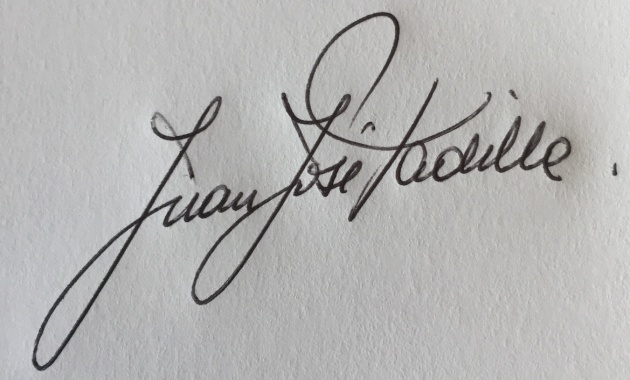 Juan José Padilla.